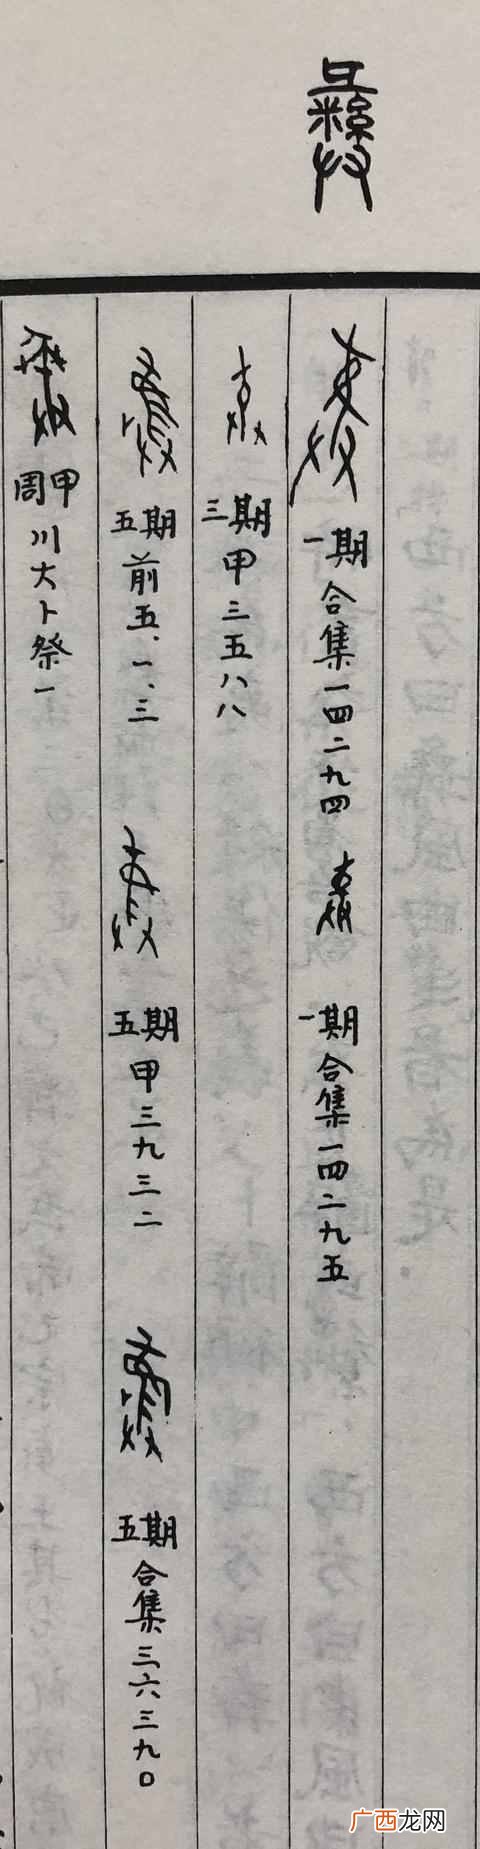 彝
一期
合集一四二九四
一期
合集一四二九五
三期
甲三五八八
五期
前五、一、三
五期
甲三九三二
五期
合集三六三九〇
周甲
川大卜祭一
广西龙网